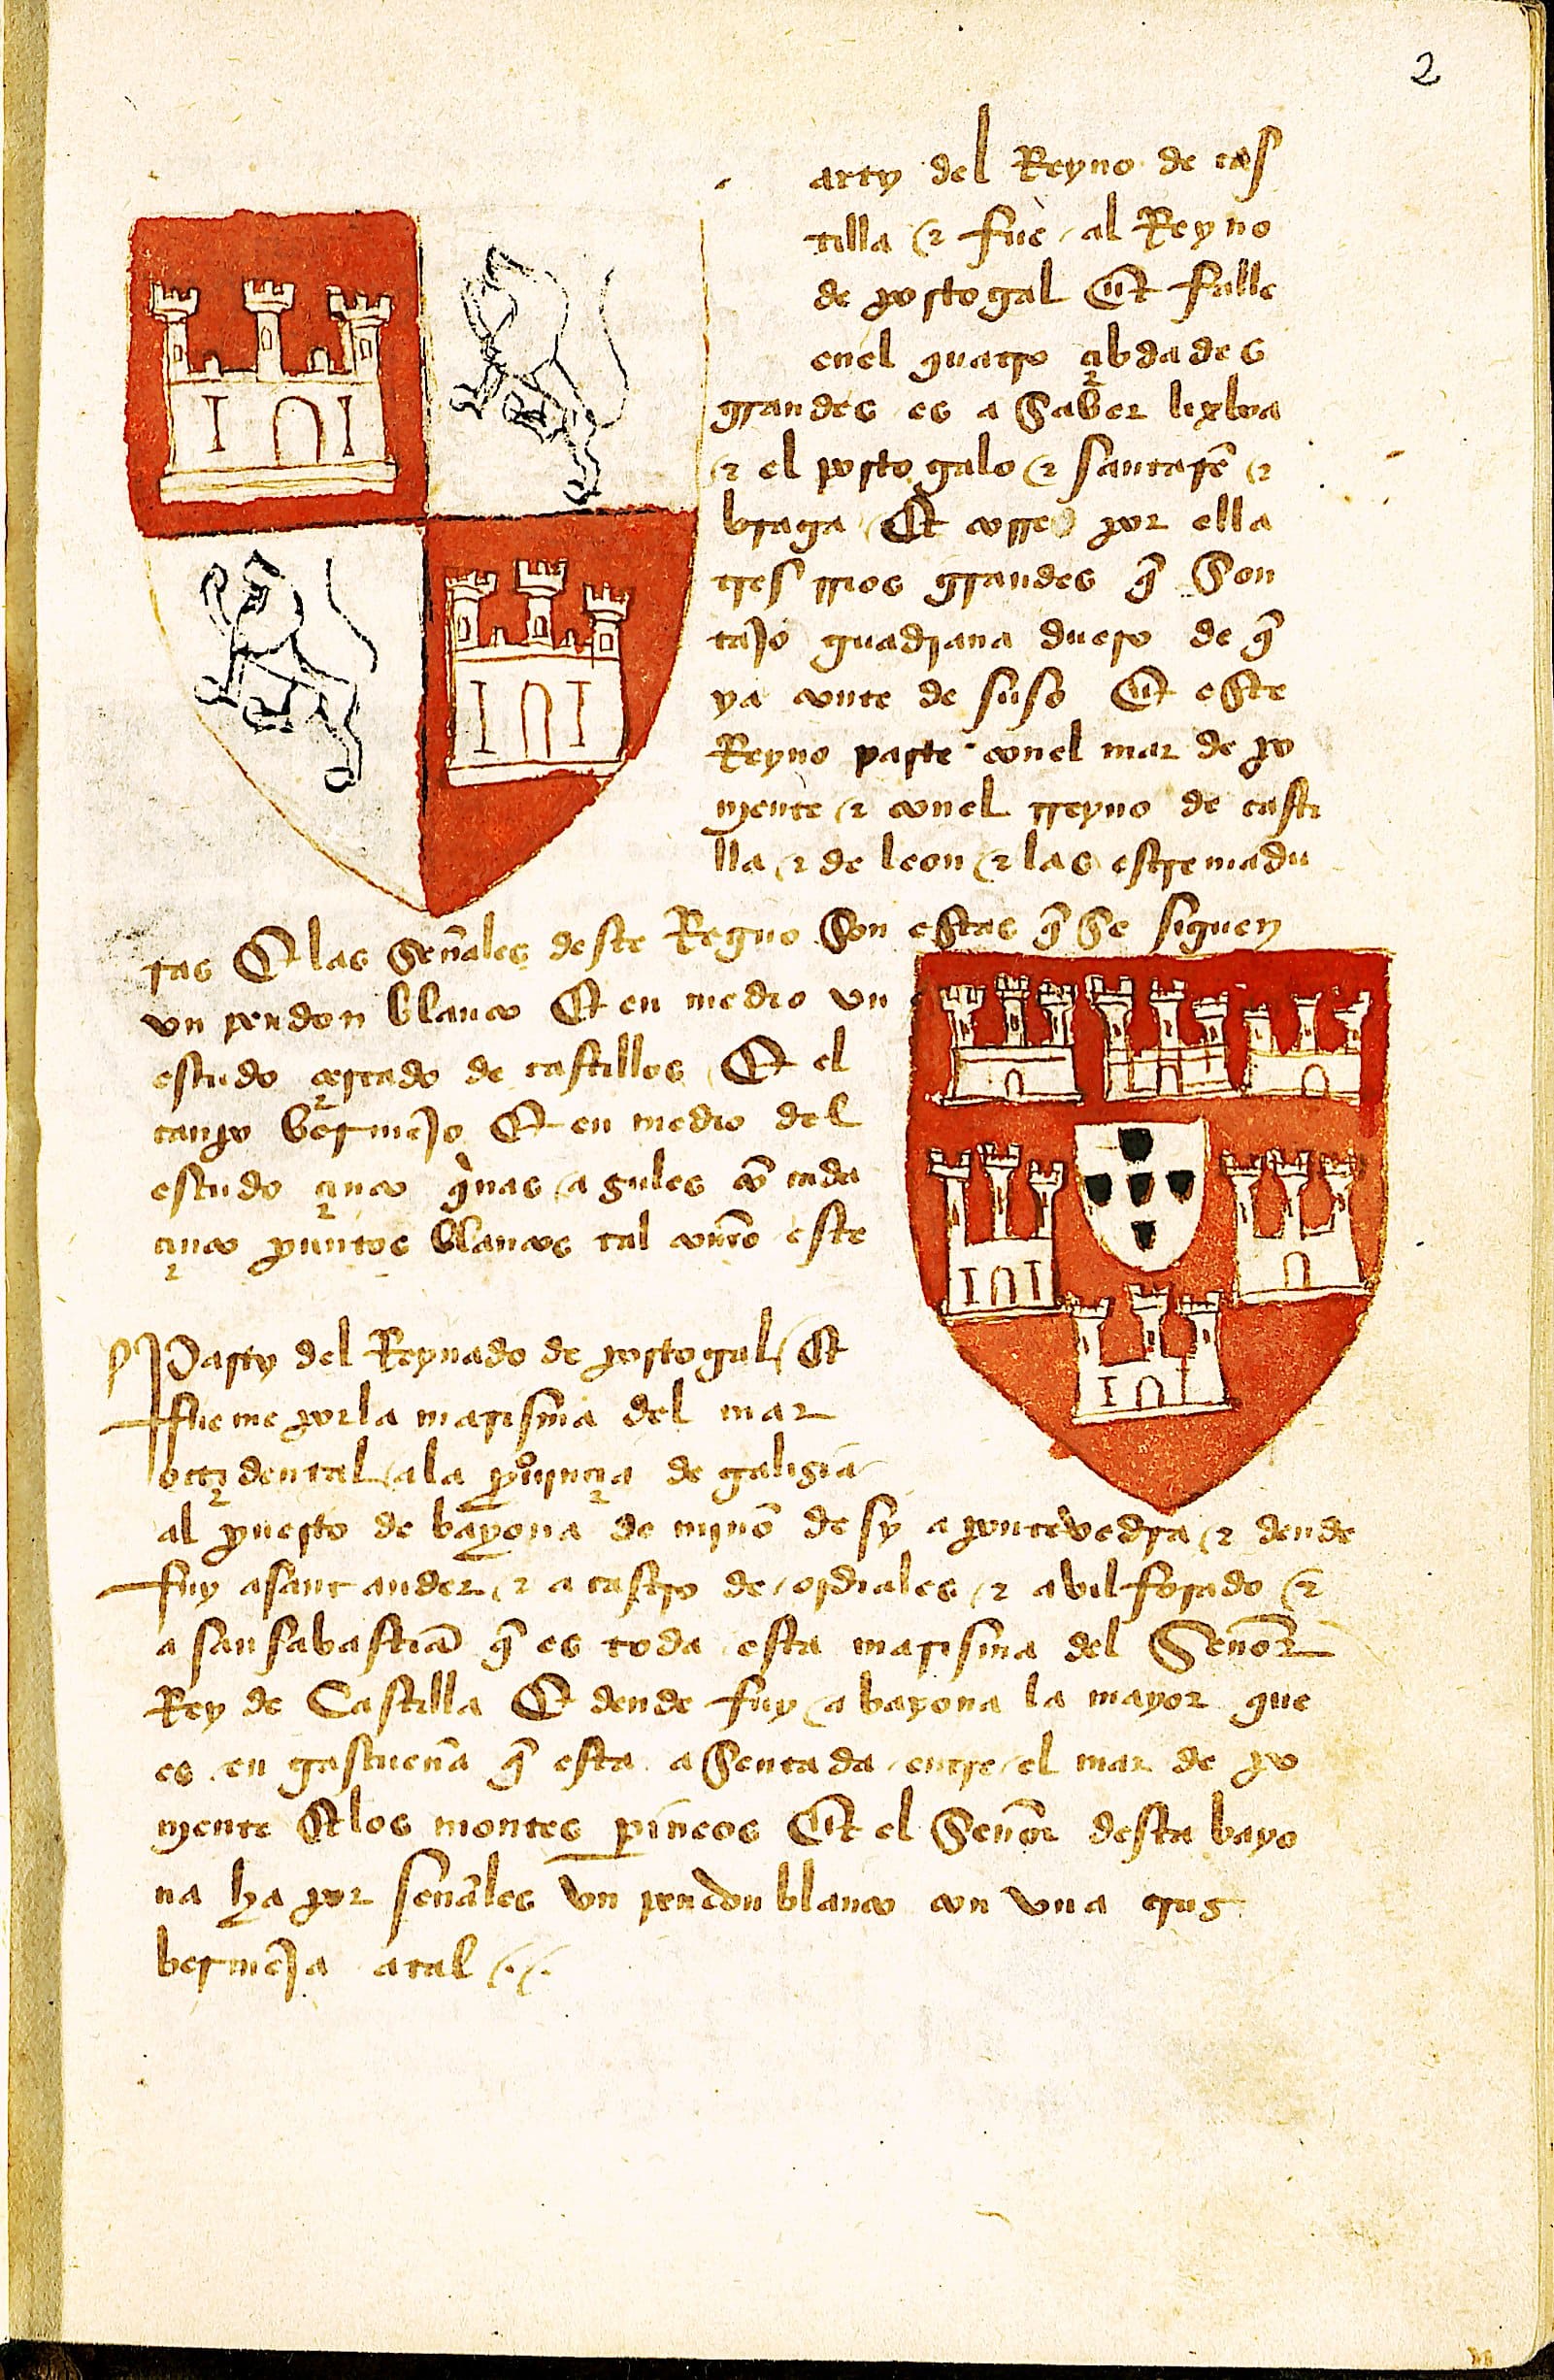 2
arty del Reyno de cas
tilla ⁊ fue al Reyno
de portogal Et falle
en el quatro çibdades
grandes es a saber lixboa
⁊ el porto galo ⁊ santarẽ ⁊
braga Et corre por ella
tres rrios grandes q̃ son
tajo guadiana duero de q̃
ya conte de suso Et este
Reyno parte con el mar de po
niente ⁊ con el rreyno de casti
lla ⁊ de leon ⁊ las estremadu
ras Et las señales deste Regno son estas q̃ se siguen
vn pendon blanco Et en medio vn
escudo çercado de castillos Et el
canpo bermejo Et en medio del
escudo çinco q̇nas agules cõ cada
çinco puntos blancos tal com̃o este
Party del Reynado de portogal Et
fueme por la marisma del mar
occidental a la prouinçia de galisia
al puerto de bayona de miño de sy a pontevedra ⁊ dende
fuy a santander ⁊ a castro de ordiales ⁊ a vilforado ⁊
a san sabastiã q̃ es toda esta marisma del Señor
Rey de Castilla Et dende fuy a bayona la mayor que
es en gascueña q̃ esta asentada entre el mar de po
niente Et los montes pineos Et el Señor desta bayo
na ha por señales vn pendon blanco con vna crus
bermeja atal